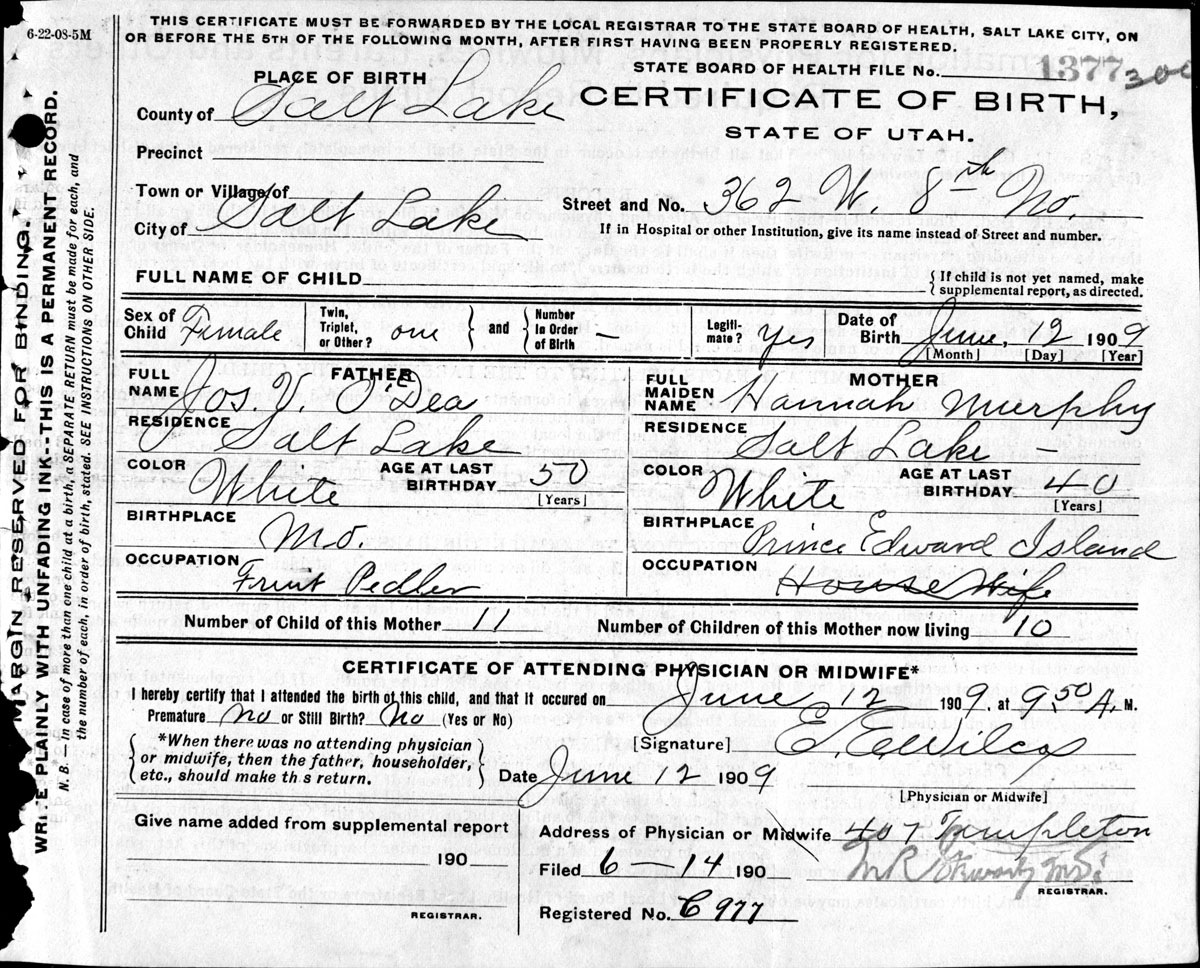 6-22-08-5M
THIS CERTIFICATE MUST BE FORWARDED BY THE LOCAL REGISTRAR TO THE STATE BOARD OF HEALTH, SALT LAKE CITY, ON
OR BEFORE THE 5TH OF THE FOLLOWING MONTH, AFTER FIRST HAVING BEEN PROPERLY REGISTERED.
STATE BOARD OF HEALTH FILE No. 1377 300
PLACE OF BIRTH
CERTIFICATE OF BIRTH,
County of Salt Lake
STATE OF UTAH.
Precinct
Town or Village of
City of Salt Lake
Street and No. 362 W. 8th No.
If in Hospital or other Institution, give its name instead of Street and number.
FULL NAME OF CHILD
{ If child is not yet named, make
supplemental report, as directed.
Sex of Child Female
Twin, Triplet, or Other? one
{ and } Number In Order of Birth
Legiti-mate? yes
Date of Birth June, 12 1909
[Month] [Day] [Year]
FATHER
FULL NAME Jos. V. O'Dea
RESIDENCE Salt Lake
COLOR White
AGE AT LAST BIRTHDAY 50
[Years]
BIRTHPLACE Mo.
OCCUPATION Fruit Pedler
MOTHER
FULL MAIDEN NAME Hannah Murphy
RESIDENCE Salt Lake
COLOR White
AGE AT LAST BIRTHDAY 40
[Years]
BIRTHPLACE Prince Edward Island
OCCUPATION House Wife
Number of Child of this Mother 11
Number of Children of this Mother now living 10
CERTIFICATE OF ATTENDING PHYSICIAN OR MIDWIFE*
I hereby certify that I attended the birth of this child, and that it occured on June 12 1909, at 9.50 A. M.
Premature No or Still Birth? No (Yes or No)
{ *When there was no attending physician
or midwife, then the father, householder,
etc., should make th s return. }
[Signature] E. E Wilcox
Date June 12 1909
[Physician or Midwife]
Give name added from supplemental report
190
REGISTRAR.
Address of Physician or Midwife 407 Templeton
Filed 6-14 190
REGISTRAR.
Registered No. C 977
MARGIN RESERVED FOR BINDING.
WRITE PLAINLY WITH UNFADING INK--THIS IS A PERMANENT RECORD.
N. B.—In case of more than one child at a birth, a SEPARATE RETURN must be made for each, and
the number of each, in order of birth, stated. SEE INSTRUCTIONS ON OTHER SIDE.